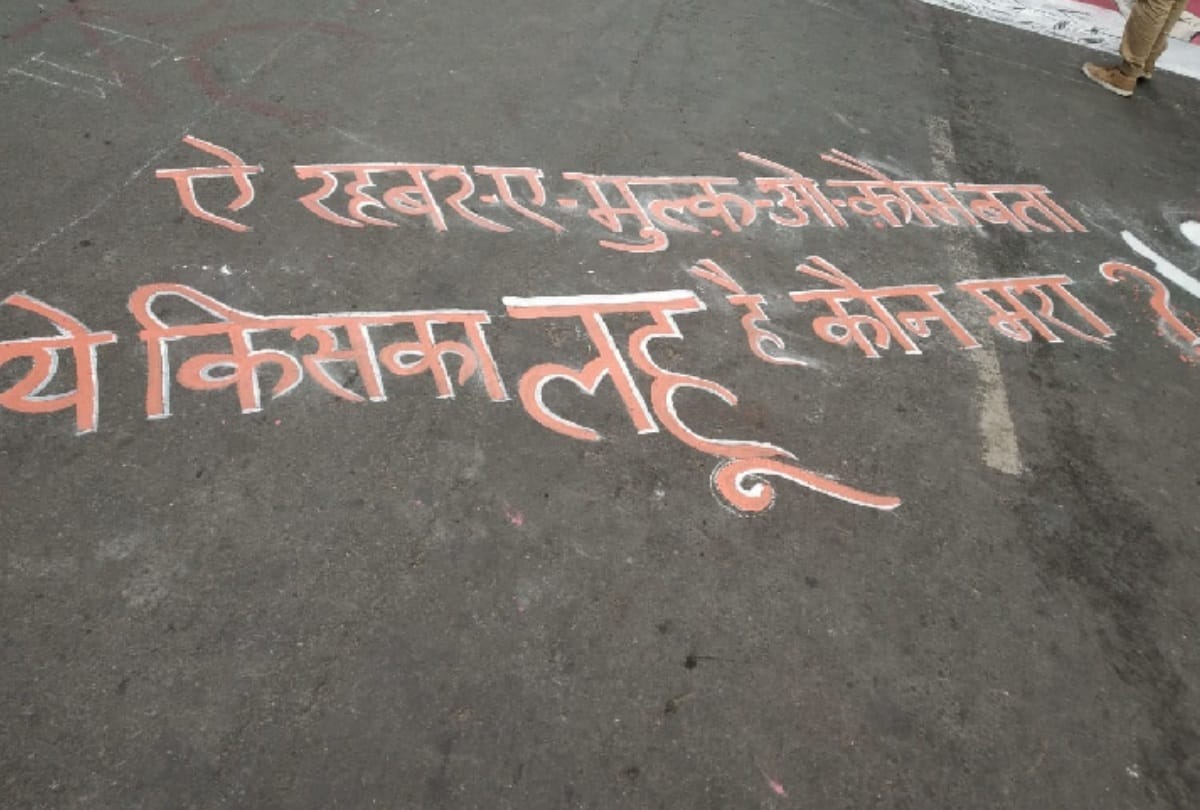 ऐ रहबर-ए-मुल्क़-ओ-क़ौम बता
ये किसका लहू है कौन मरा?